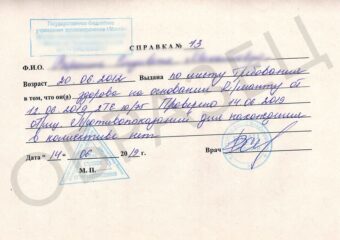 Государственное бюджетное
учреждение здравоохранения
СПРАВКА № 13
Ф.И.О.
Возраст 20.06.2012 Выдана по месту требования
в том, что он(а) здорова на основании
12.06.2019 Проверено 14.06.2019
Противопоказаний для нахождения
в коллективе нет.
Дата «14» 06 2019 г. Врач
М. П.
ОБРАЗЕЦ